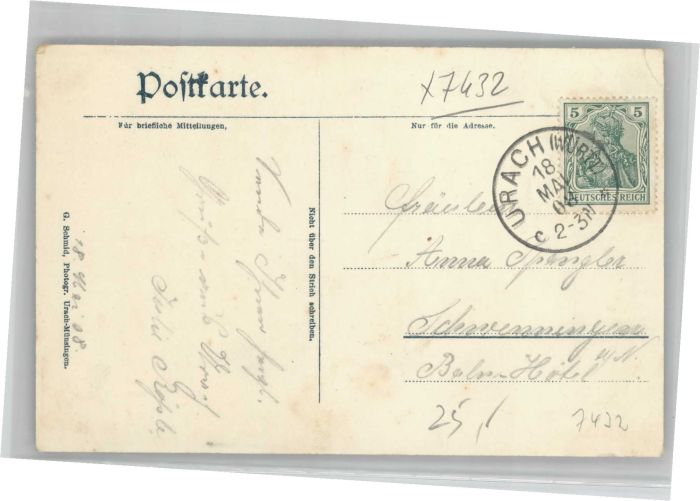 Postkarte.
x7432
Für briefliche Mitteilungen,
Nur für die Adresse.
5 5
DEUTSCHES REICH
URACH (WÜRTT.)
18
MAI
08
C 2-3N
Fräulein
Anna Spengler
Schwenningen
a/N.
Bahn-Hotel
25,
7432
Gruß
18. Mai 08.
Nicht über den Strich schreiben.
G. Schmid, Photogr. Urach-Münsingen.